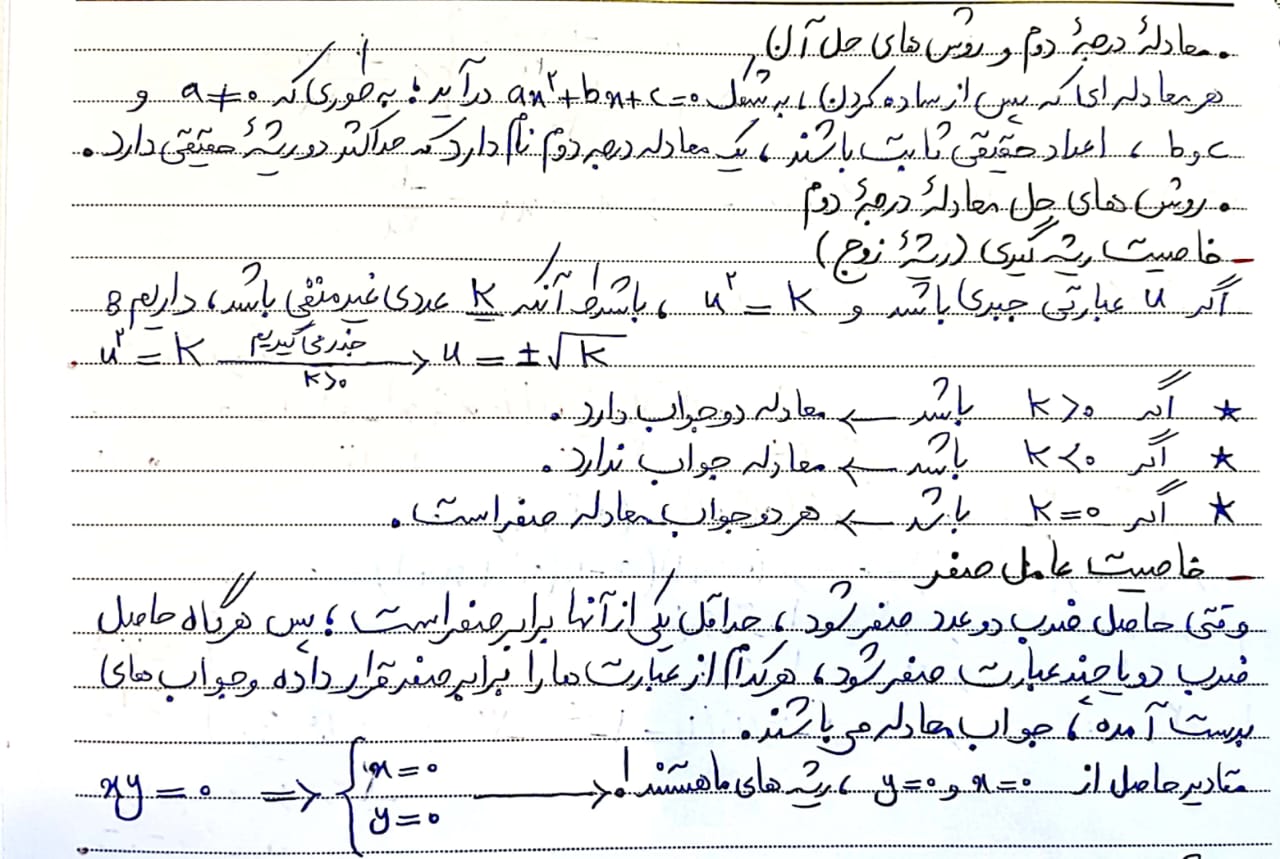 • معادلهٔ درجهٔ دوم و روش های حل آن
هر معادله ای که پس از ساده کردن، به شکل ax²+bx+c=۰ درآید؛ به طوری که a≠۰ و
b و c، اعداد حقیقی ثابت باشند، یک معادله درجه دوم نام دارد که حداکثر دو ریشهٔ حقیقی دارد.
• روش های حل معادلهٔ درجهٔ دوم
- خاصیت ریشه گیری (ریشهٔ زوج)
اگر u عبارتی جبری باشد و u² = k، باشرط آنکه k عددی غیر منفی باشد، داریم:
u² = k جذر می گیریم k>۰ → u = ±√k
★ اگر k>۰ باشد ← معادله دو جواب دارد.
★ اگر k<۰ باشد ← معادله جواب ندارد.
★ اگر k=۰ باشد ← هر دو جواب معادله صفر است.
- خاصیت عامل صفر
وقتی حاصل ضرب دو عدد صفر شود، حداقل یکی از آنها برابر صفر است؛ پس هرگاه حاصل
ضرب دو یا چند عبارت صفر شود، هرکدام از عبارت ها را برابر صفر قرار داده و جواب های
بدست آمده، جواب معادله می باشند.
xy = ۰ ⇒ { x=۰ y=۰ → مقادیر حاصل از x=۰ و y=۰، ریشه های ما هستند!